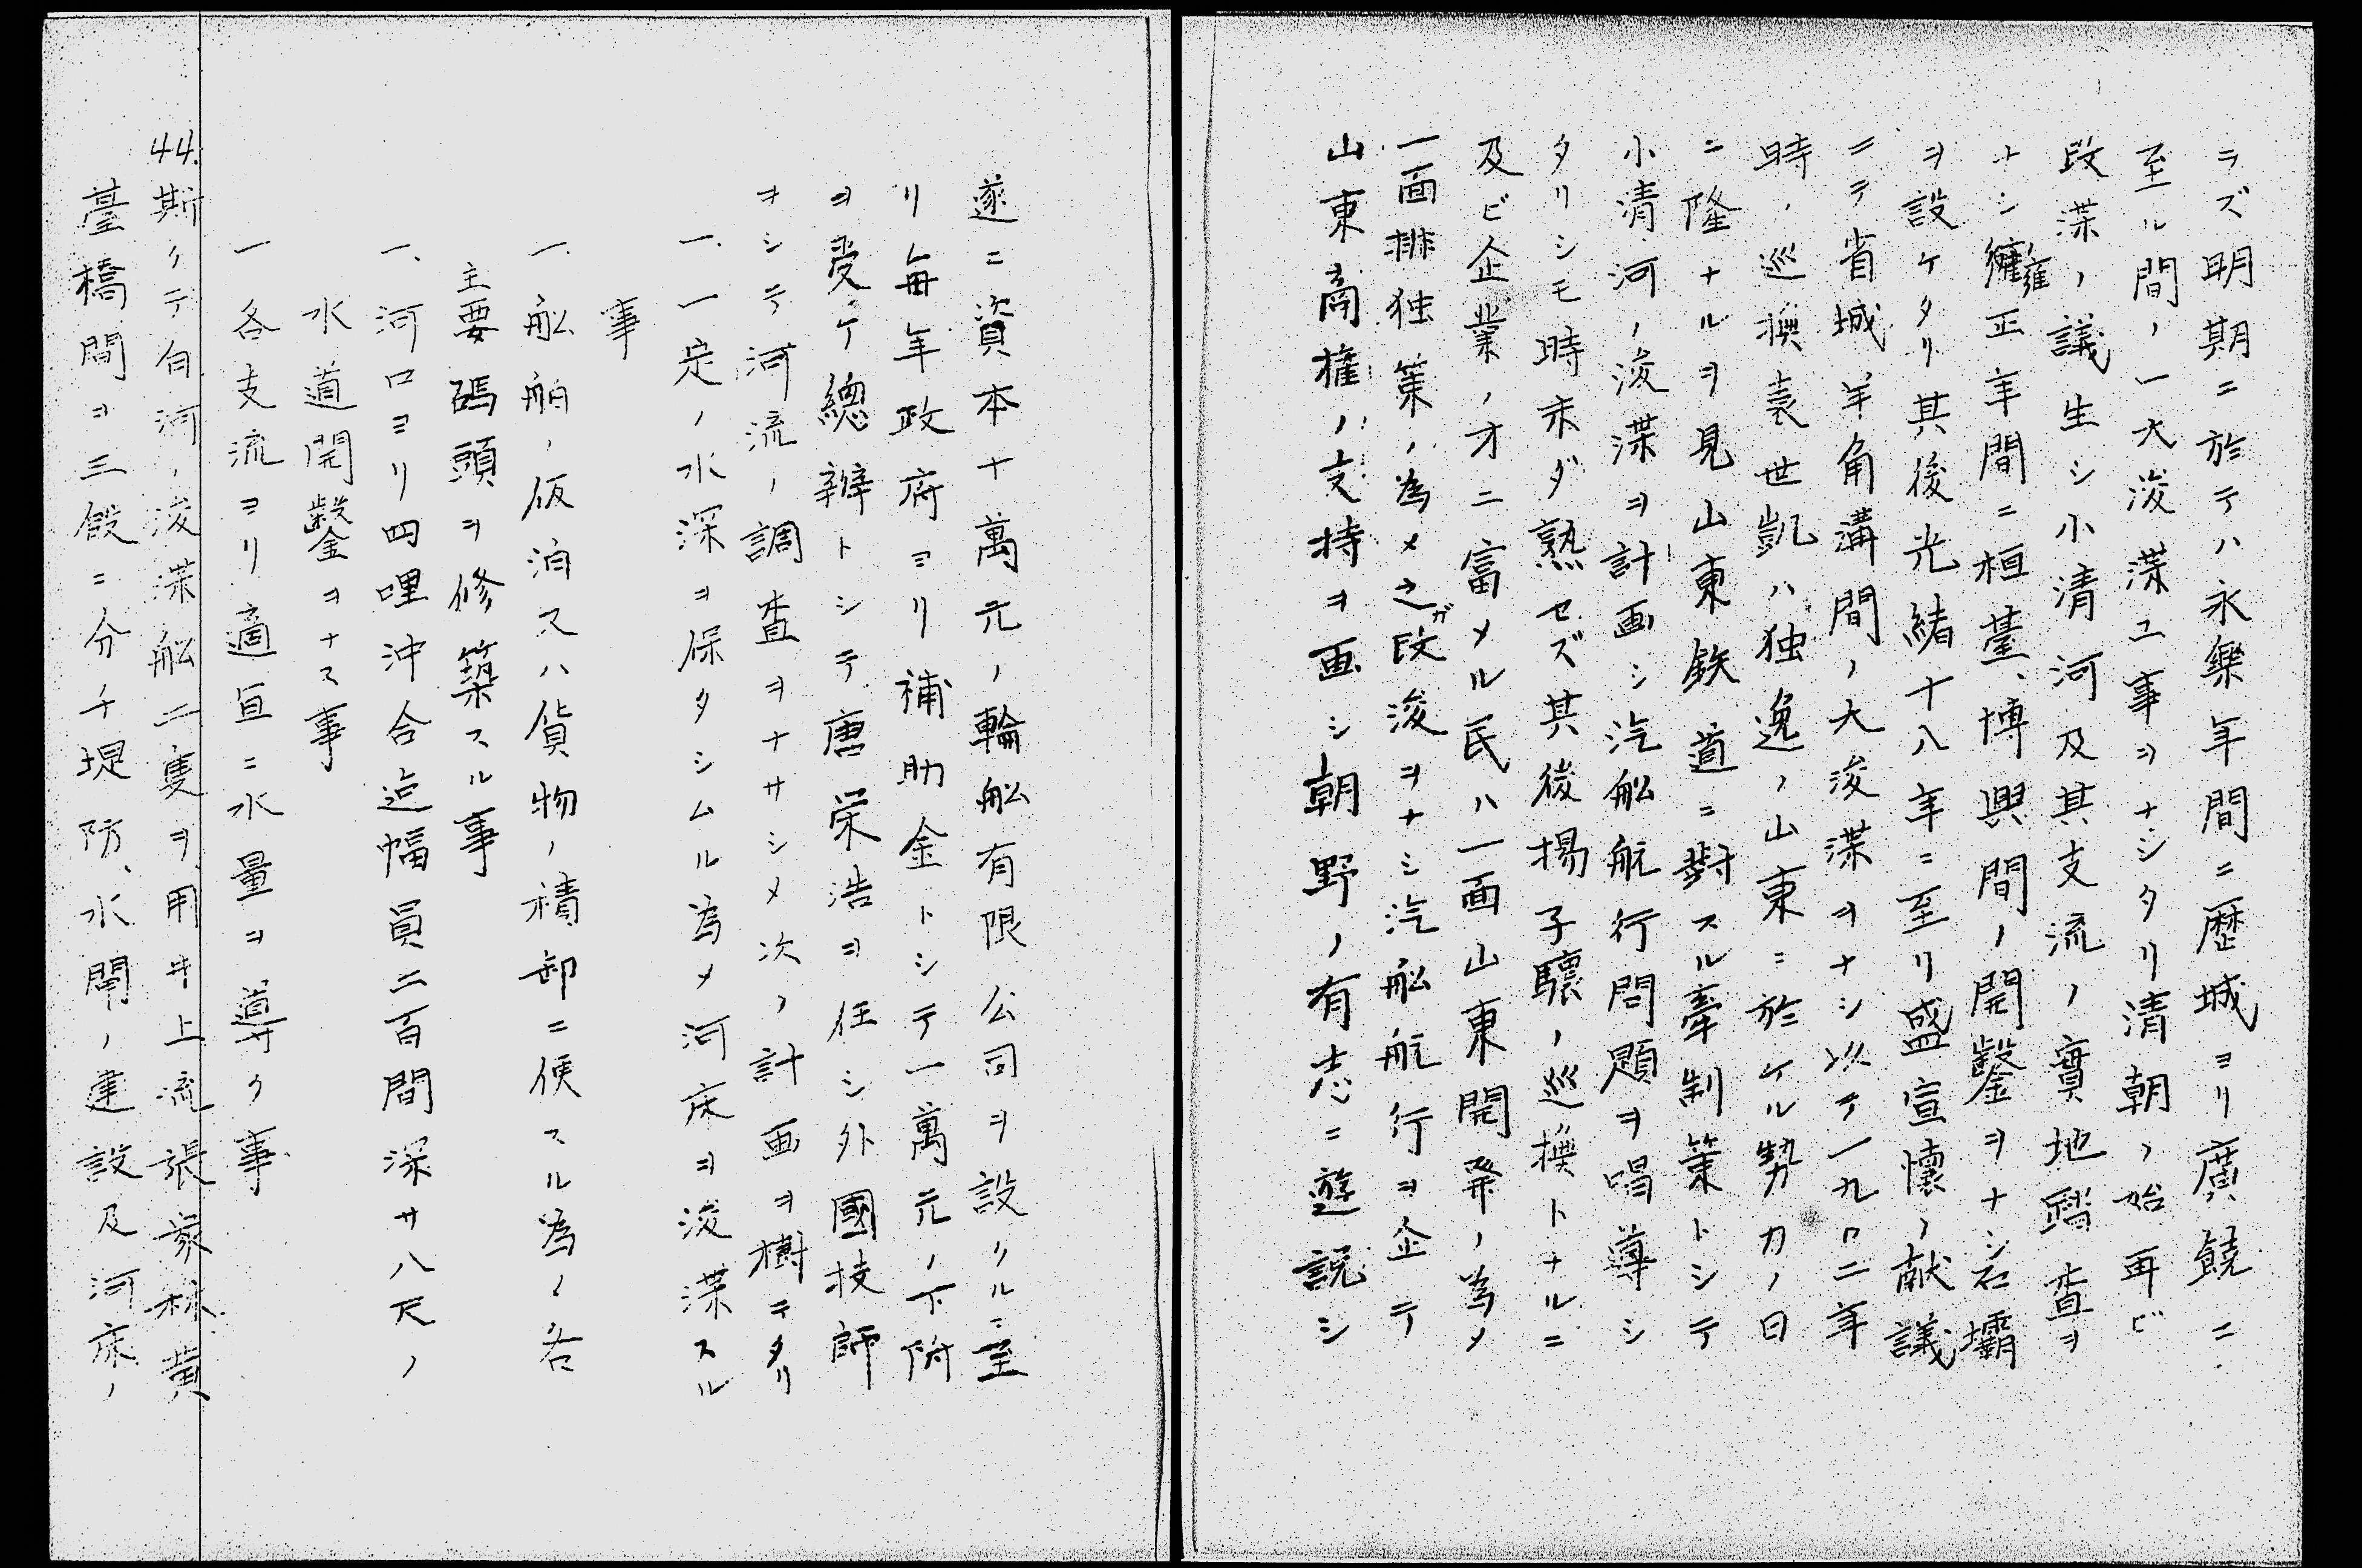 ラズ明期ニ於テハ永樂年間ニ歴城ヨリ廣饒ニ
至ル間ノ一大浚渫工事ヲナシタリ清朝ノ始再ビ
改渫ノ議生シ小清河及其支流ノ實地踏査ヲ
ナシ雍正年間ニ桓䑓、博興間ノ開鑿ヲナシ石壩
ヲ設ケタリ其後光緒十八年ニ至リ盛宣懐ノ献議
ニテ省城羊角溝間ノ大浚渫ヲナシ以テ一九〇二年
時ノ巡撫袁世凱ハ独逸ノ山東ニ於ケル勢力ノ日
ニ隆ナルヲ見山東鉄道ニ對スル牽制策トシテ
小清河ノ浚渫ヲ計画シ汽舩航行問題ヲ唱導シ
タリシモ時未ダ熟セズ其後揚子驤ノ巡撫トナルニ
及ビ企業ノ才ニ富メル民ハ一面山東開発ノ為メ
一面排独策ノ為メ之ガ改浚ヲナシ汽舩航行ヲ企テ
山東商権ノ支持ヲ画シ朝野ノ有志ニ遊説シ
遂ニ資本十萬元ノ輪舩有限公司ヲ設クルニ至
リ毎年政府ヨリ補助金トシテ一萬元ノ下附
ヲ受ケ總辦トシテ唐栄浩ヲ任シ外國技師
ヲシテ河流ノ調査ヲナサシメ次ノ計画ヲ樹テタリ
一、一定ノ水深ヲ保タシムル為メ河床ヲ浚渫スル
事
一、舩舶ノ仮泊又ハ貨物ノ積卸ニ便スル為メ各
主要碼頭ヲ修築スル事
一、河口ヨリ四哩沖合迠幅員二百間深サ八尺ノ
水道開鑿ヲナス事
一 各支流ヨリ適宜ニ水量ヲ導ク事
44.斯クテ白河ノ浚渫舩二隻ヲ用ヰ上流張家林黄
䑓橋間ヲ三段ニ分ケ堤防、水閘ノ建設及河床ノ